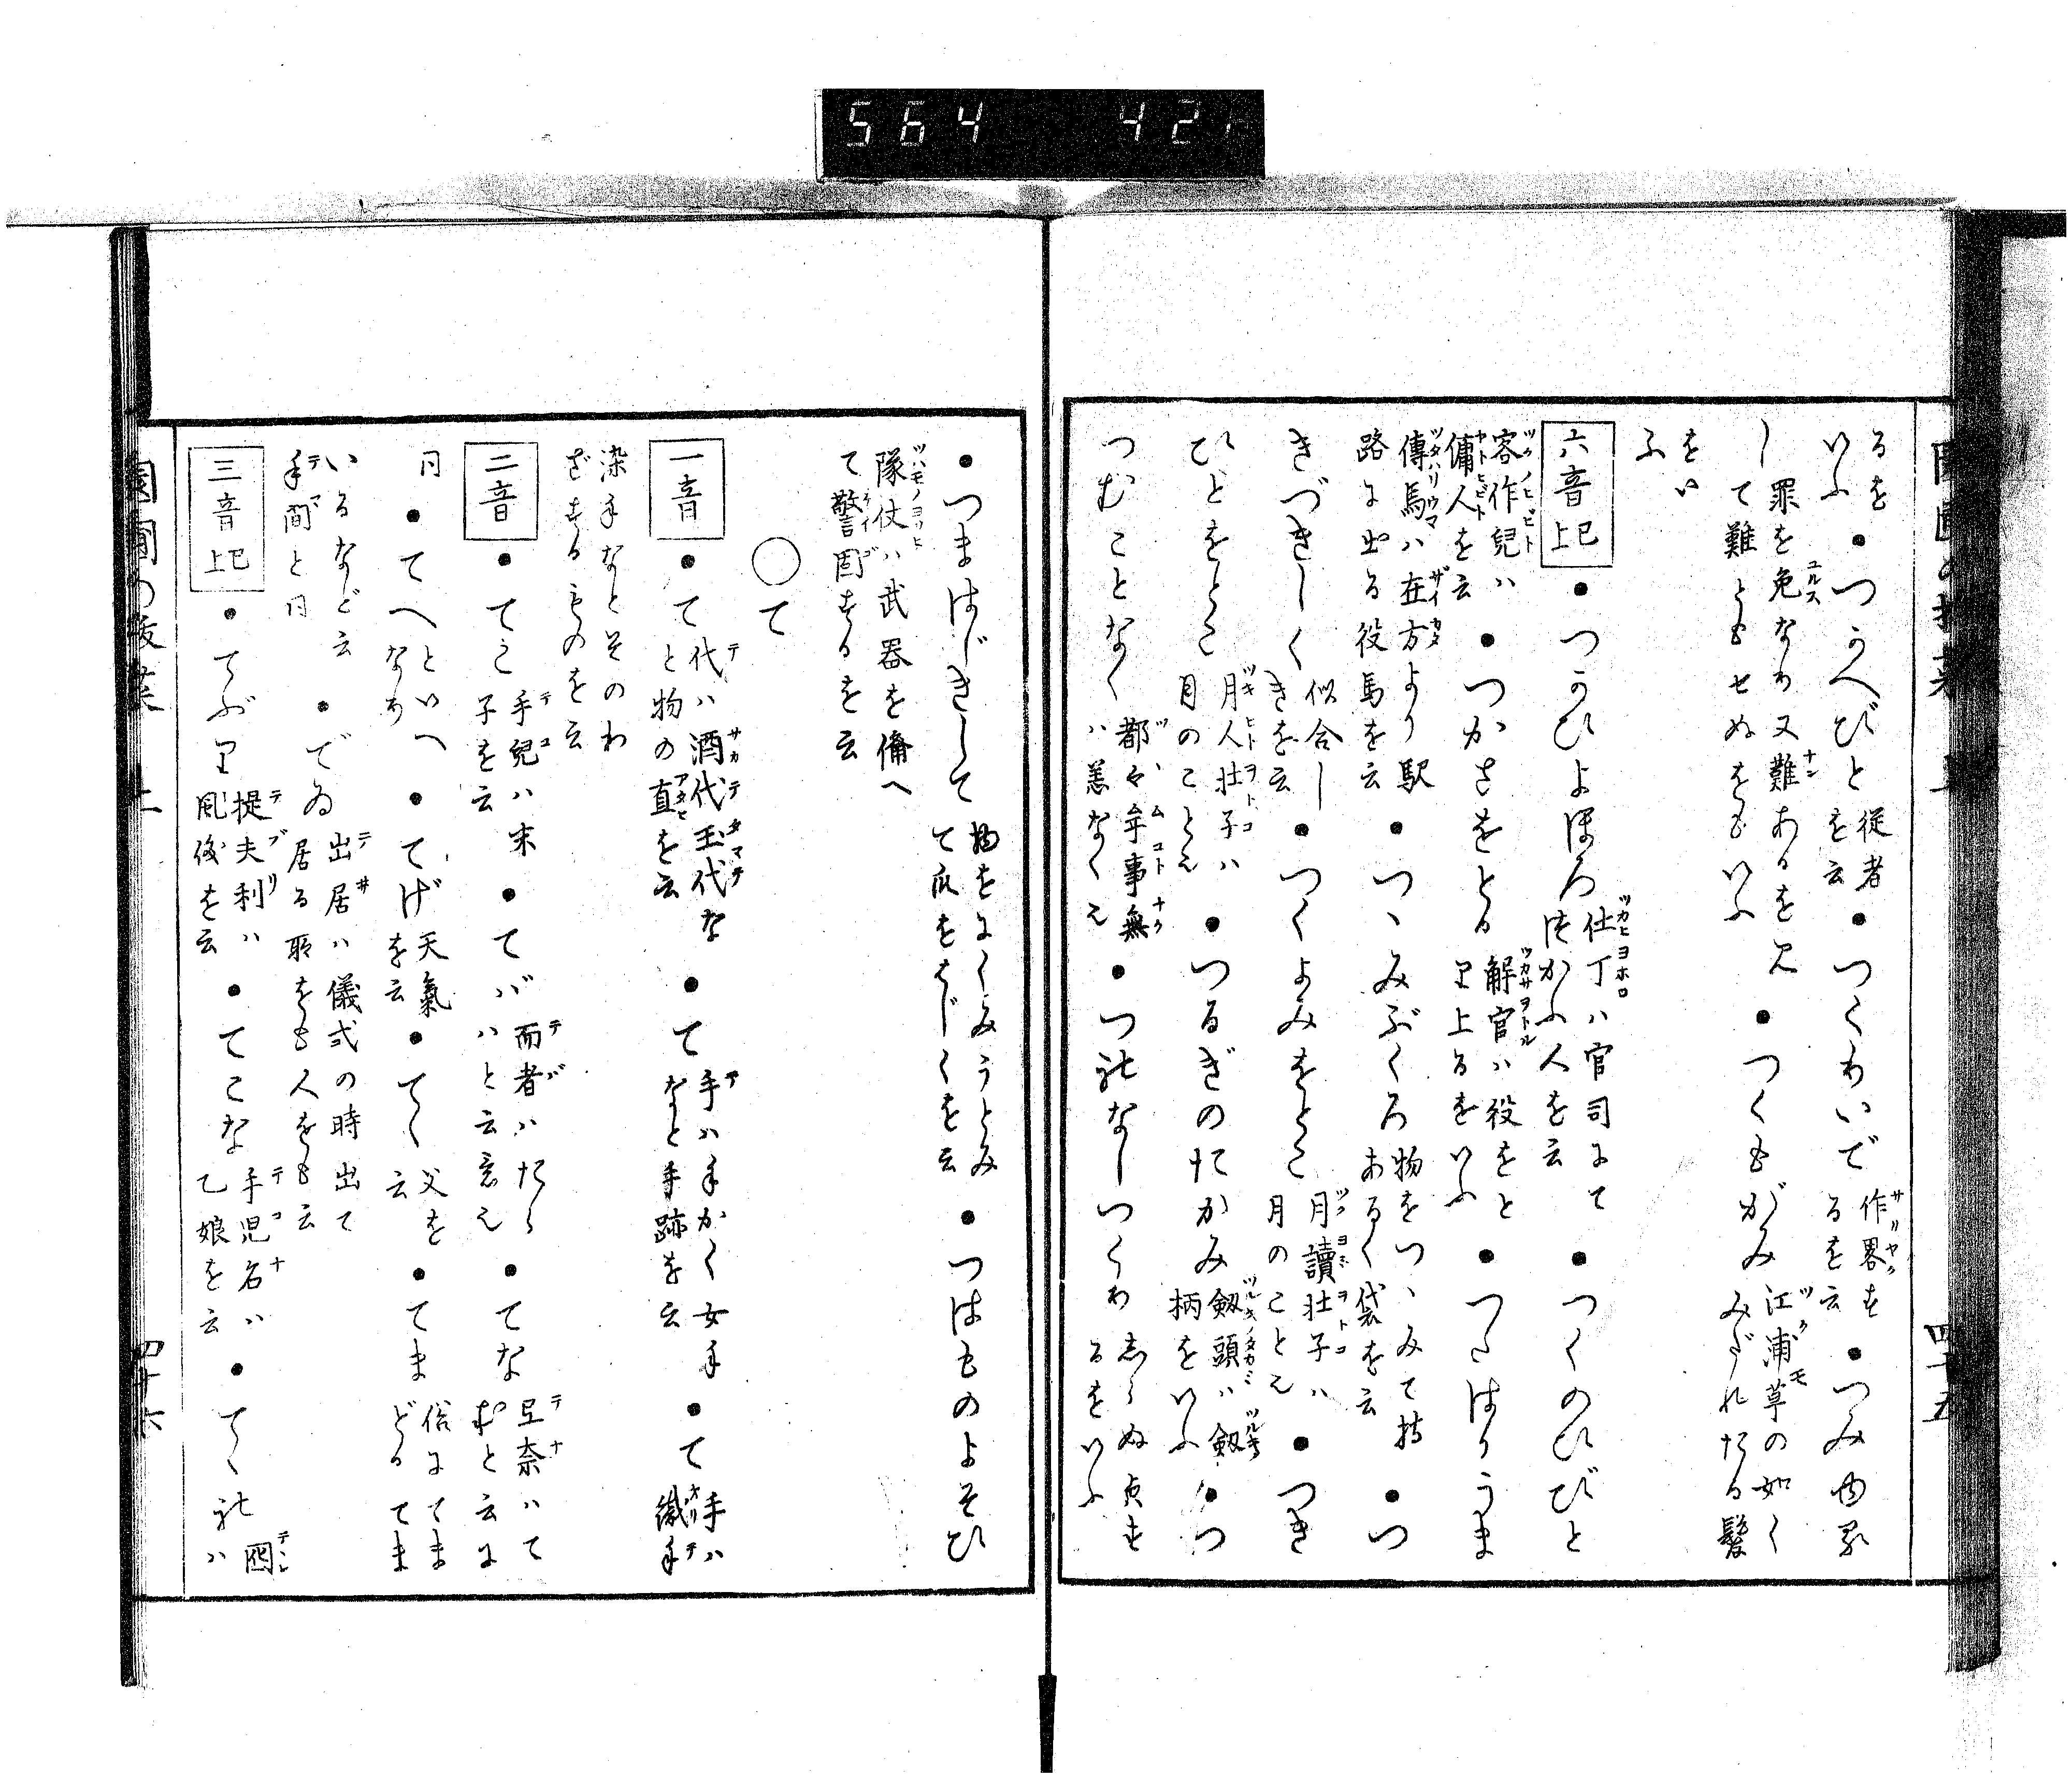 564 421
るを
いふ
●つかへびと
従者
を云
●つくりいで
作畧を
るを云
●つみゆる
し
罪を免なり又難あるを
て難ともせぬをもいふ
●つくもがみ
江浦草の如く
みだれたる髪
をい
ふ
六音已上
●つかひよほろ
仕丁ハ官司にて
つかふ人を云
●つくのひびと
客作兒ハ
傭人を云
●つかさをとる
解官ハ役をと
り上るをいふ
●つたはりうま
傳馬ハ在方より駅
路に出る役馬を云
●つゝみぶくろ
物をつゝみて持
あるく袋を云
●つ
きづきしく
似合し
きを云
●つくよみをとこ
月讀壮子ハ
月のこと也
●つき
ひとをとこ
月人壮子ハ
月のこと也
●つるぎのたかみ
劔頭ハ劔
柄をいふ
●つ
つむことなく
都々牟事無
ハ恙なく也
●つれなしつくり
しらぬ皃を
るをいふ
四十五
●つまはじきして
物をにくみうとみ
て爪をはじくを云
●つはものよそひ
隊仗ハ武器を備へ
て警固するを云
○て
一音
●て
代ハ酒代玉代な
と物の直を云
●て
手ハ手かく女手
なと手跡を云
●て
手ハ
織手
染手なとそのわ
ざするものを云
二音
●てこ
手兒ハ末
子を云
●てバ
而者ハたら
ハと云意也
●てな
て
むと云に
同
●てへ
といへ
なり
●てげ
天氣
を云
●てゝ
父を
云
●てま
俗にてま
どるてま
いるなど云
手間と同
●でゐ
出居ハ儀式の時出て
居る所をも人をも云
三音已上
●てぶり
提夫利ハ
風俗を云
●てこな
手児名ハ
乙娘を云
●てゝれ
ハ
四十六